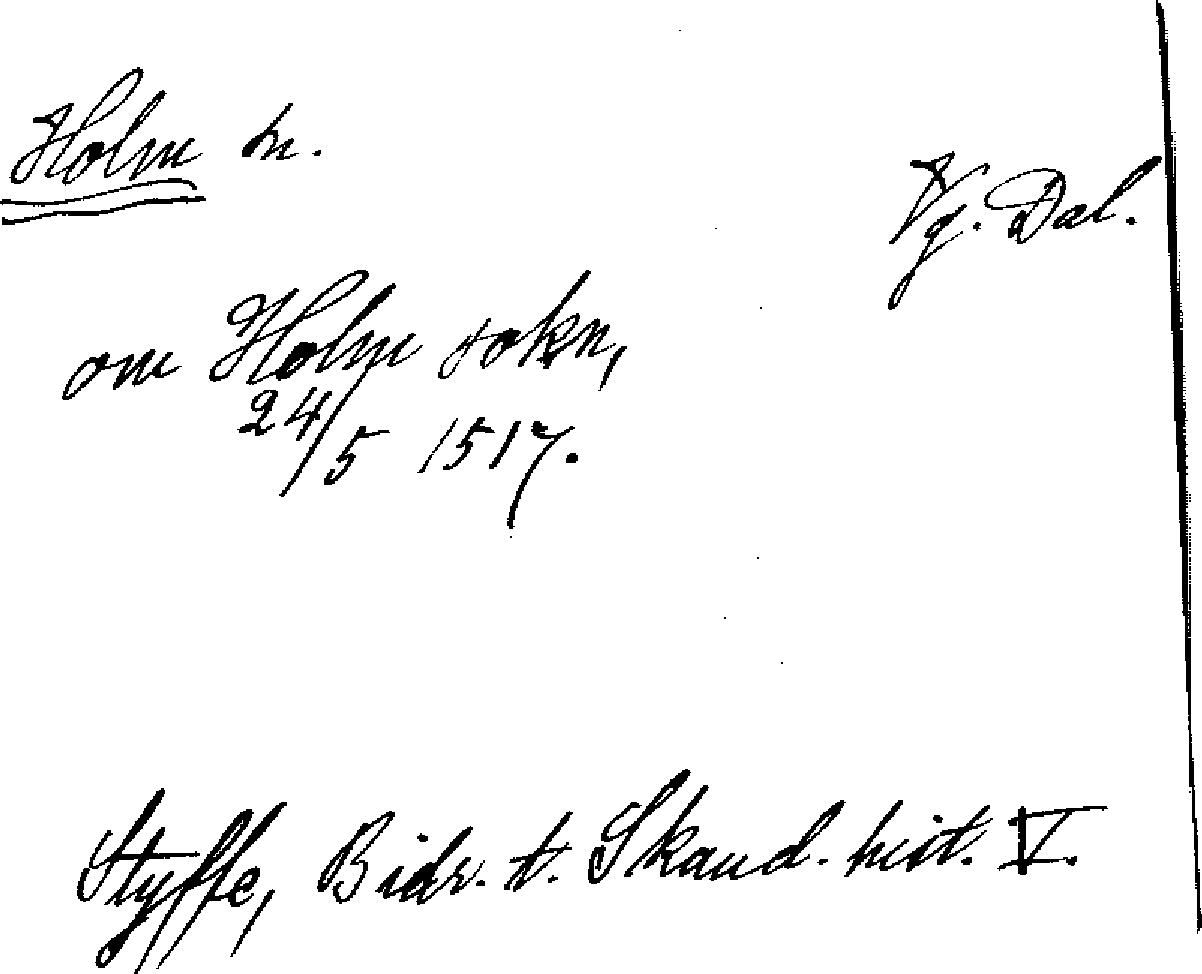 Holm sn.
Vg. Dal.
om Holm sokn,
24/5 1517.
Styffe, Bidr. t. Skand. hist. V.